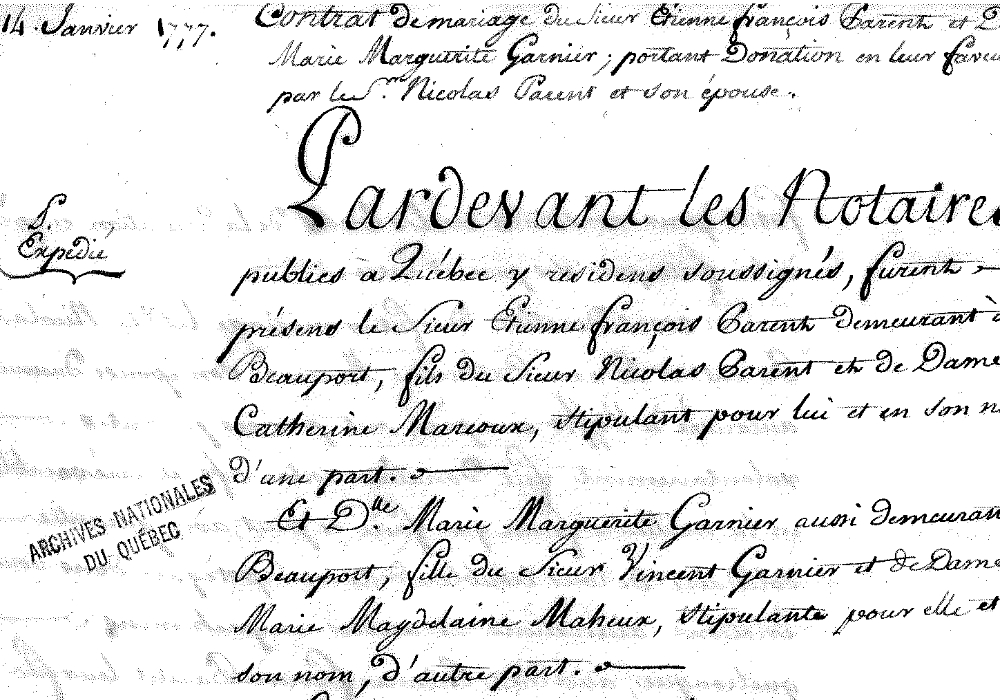 14 Janvier 1777.
Contrat de mariage du Sieur Etienne françois Parent et D
Marie Marguerite Garnier; portant Donation en leur faveu
par le S.r Nicolas Parent et son épouse.
Pardevant les Notaires
P.
Expedié
publics a Québec y residens soussignés, furent
présens le Sieur Etienne françois Parent demeurant à
Beauport, fils du Sieur Nicolas Parent et de Dame
Catherine Marcoux, stipulant pour lui et en son n
d'une part.
Et D.lle Marie Marguerite Garnier aussi demeuran
Beauport, fille du Sieur Vincent Garnier et de Dame
Marie Magdelaine Maheux, stipulante pour elle et
son nom, d'autre part.
ARCHIVES NATIONALES
DU QUÉBEC